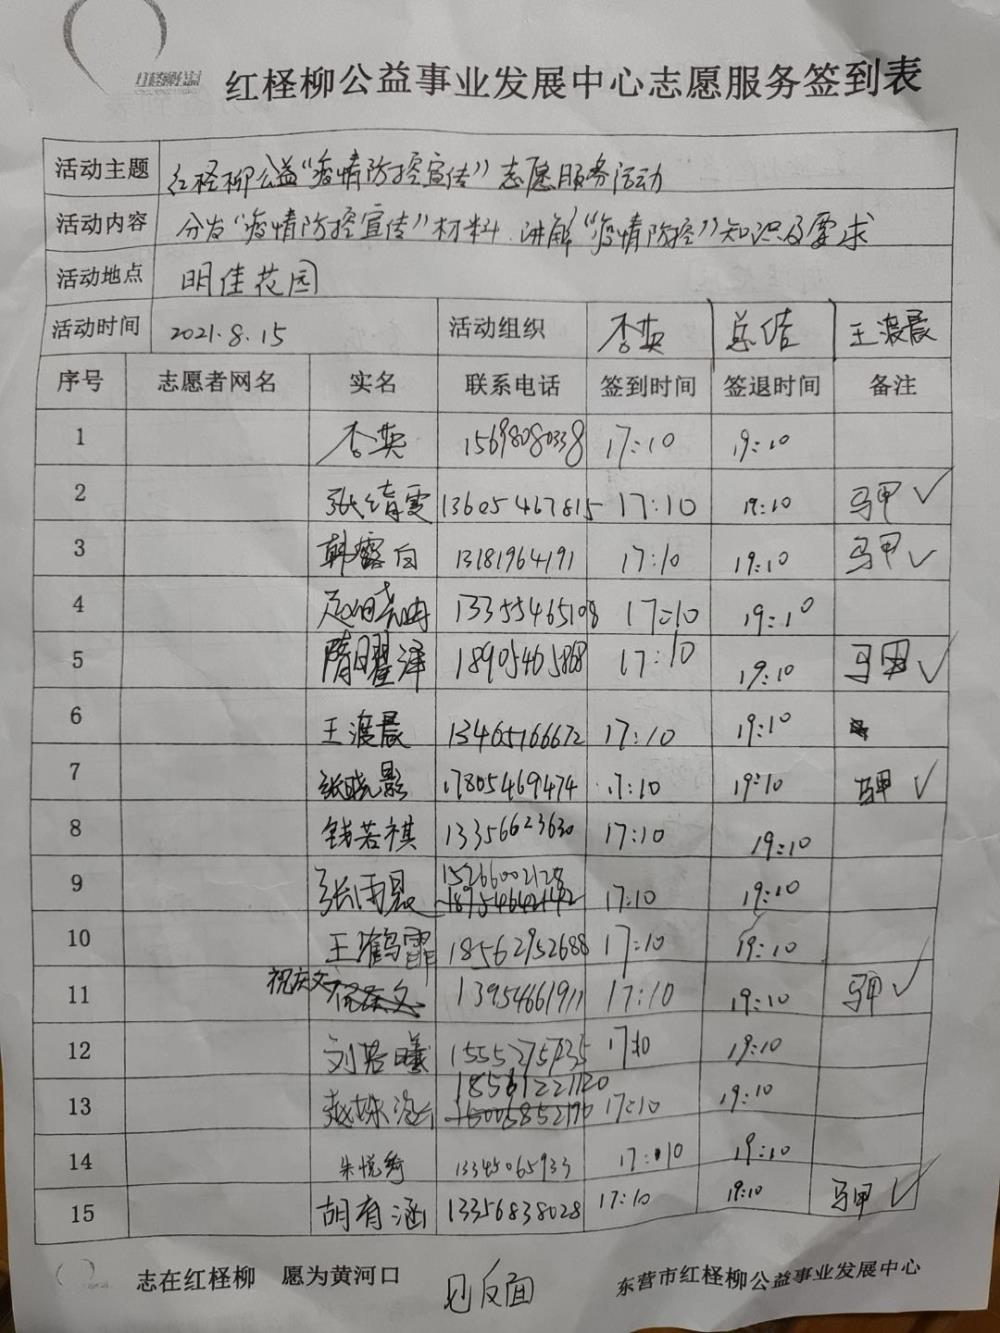 红柽柳公益
红柽柳公益事业发展中心志愿服务签到表
活动主题 红柽柳公益“疫情防控宣传”志愿服务活动
活动内容 分发“疫情防控宣传”材料、讲解“疫情防控”知识及要求
活动地点 明佳花园
活动时间 2021.8.15 活动组织 李英 总结 王渡晨
序号 志愿者网名 实名 联系电话 签到时间 签退时间 备注
1 李英 15698080338 17:10 19:10
2 张绮雯 13605467815 17:10 19:10 马甲✓
3 韩露白 13181964191 17:10 19:10 马甲✓
4 13355465108 17:10 19:10
5 隋曜泽 18905465868 17:10 19:10 马甲✓
6 王渡晨 13465166672 17:10 19:10
7 张晓影 17805469474 17:10 19:10 马甲✓
8 钱若祺 13356623630 17:10 19:10
9 张雨晨 15266002128 17:10 19:10
10 王鹤霏 18562952688 17:10 19:10
11 祝庆文 13954661911 17:10 19:10 马甲✓
12 刘若曦 15552757735 17:10 19:10
13 18561221120 17:10 19:10
14 朱悦绮 13345065933 17:10 19:10
15 胡有涵 13356838028 17:10 19:10 马甲✓
志在红柽柳 愿为黄河口 见反面 东营市红柽柳公益事业发展中心